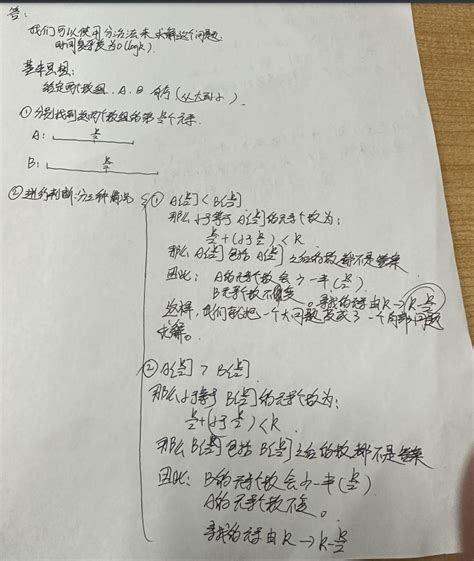 答:
我们可以使用分治法来求解这个问题
时间复杂度为O(logk).
基本思想:
给定两个数组, A, B 有序(从大到小)
① 分别找到这两个数组的第k/2个元素.
A: k/2
B: k/2
② 进行判断:分三种情况
① A[k/2] < B[k/2]
那么小于等于 A[k/2] 的元素个数为:
k/2+(小于k/2) < k
那么 A[k/2] 包括 A[k/2] 之左的数都不是答案
因此: A的元素个数会少一半(k/2)
B元素个数不变。寻找的元素由k→k-k/2
这样,我们就把一个大问题变成了一个局部小问题
求解。
② A[k/2] > B[k/2]
那么小于等于 B[k/2] 的元素个数为:
k/2+(小于k/2)<k
那么 B[k/2] 包括 B[k/2] 之左的数都不是答案
因此: B的元素个数会少一半(k/2)
A的元素个数不变。
寻找的元素由k→k-k/2